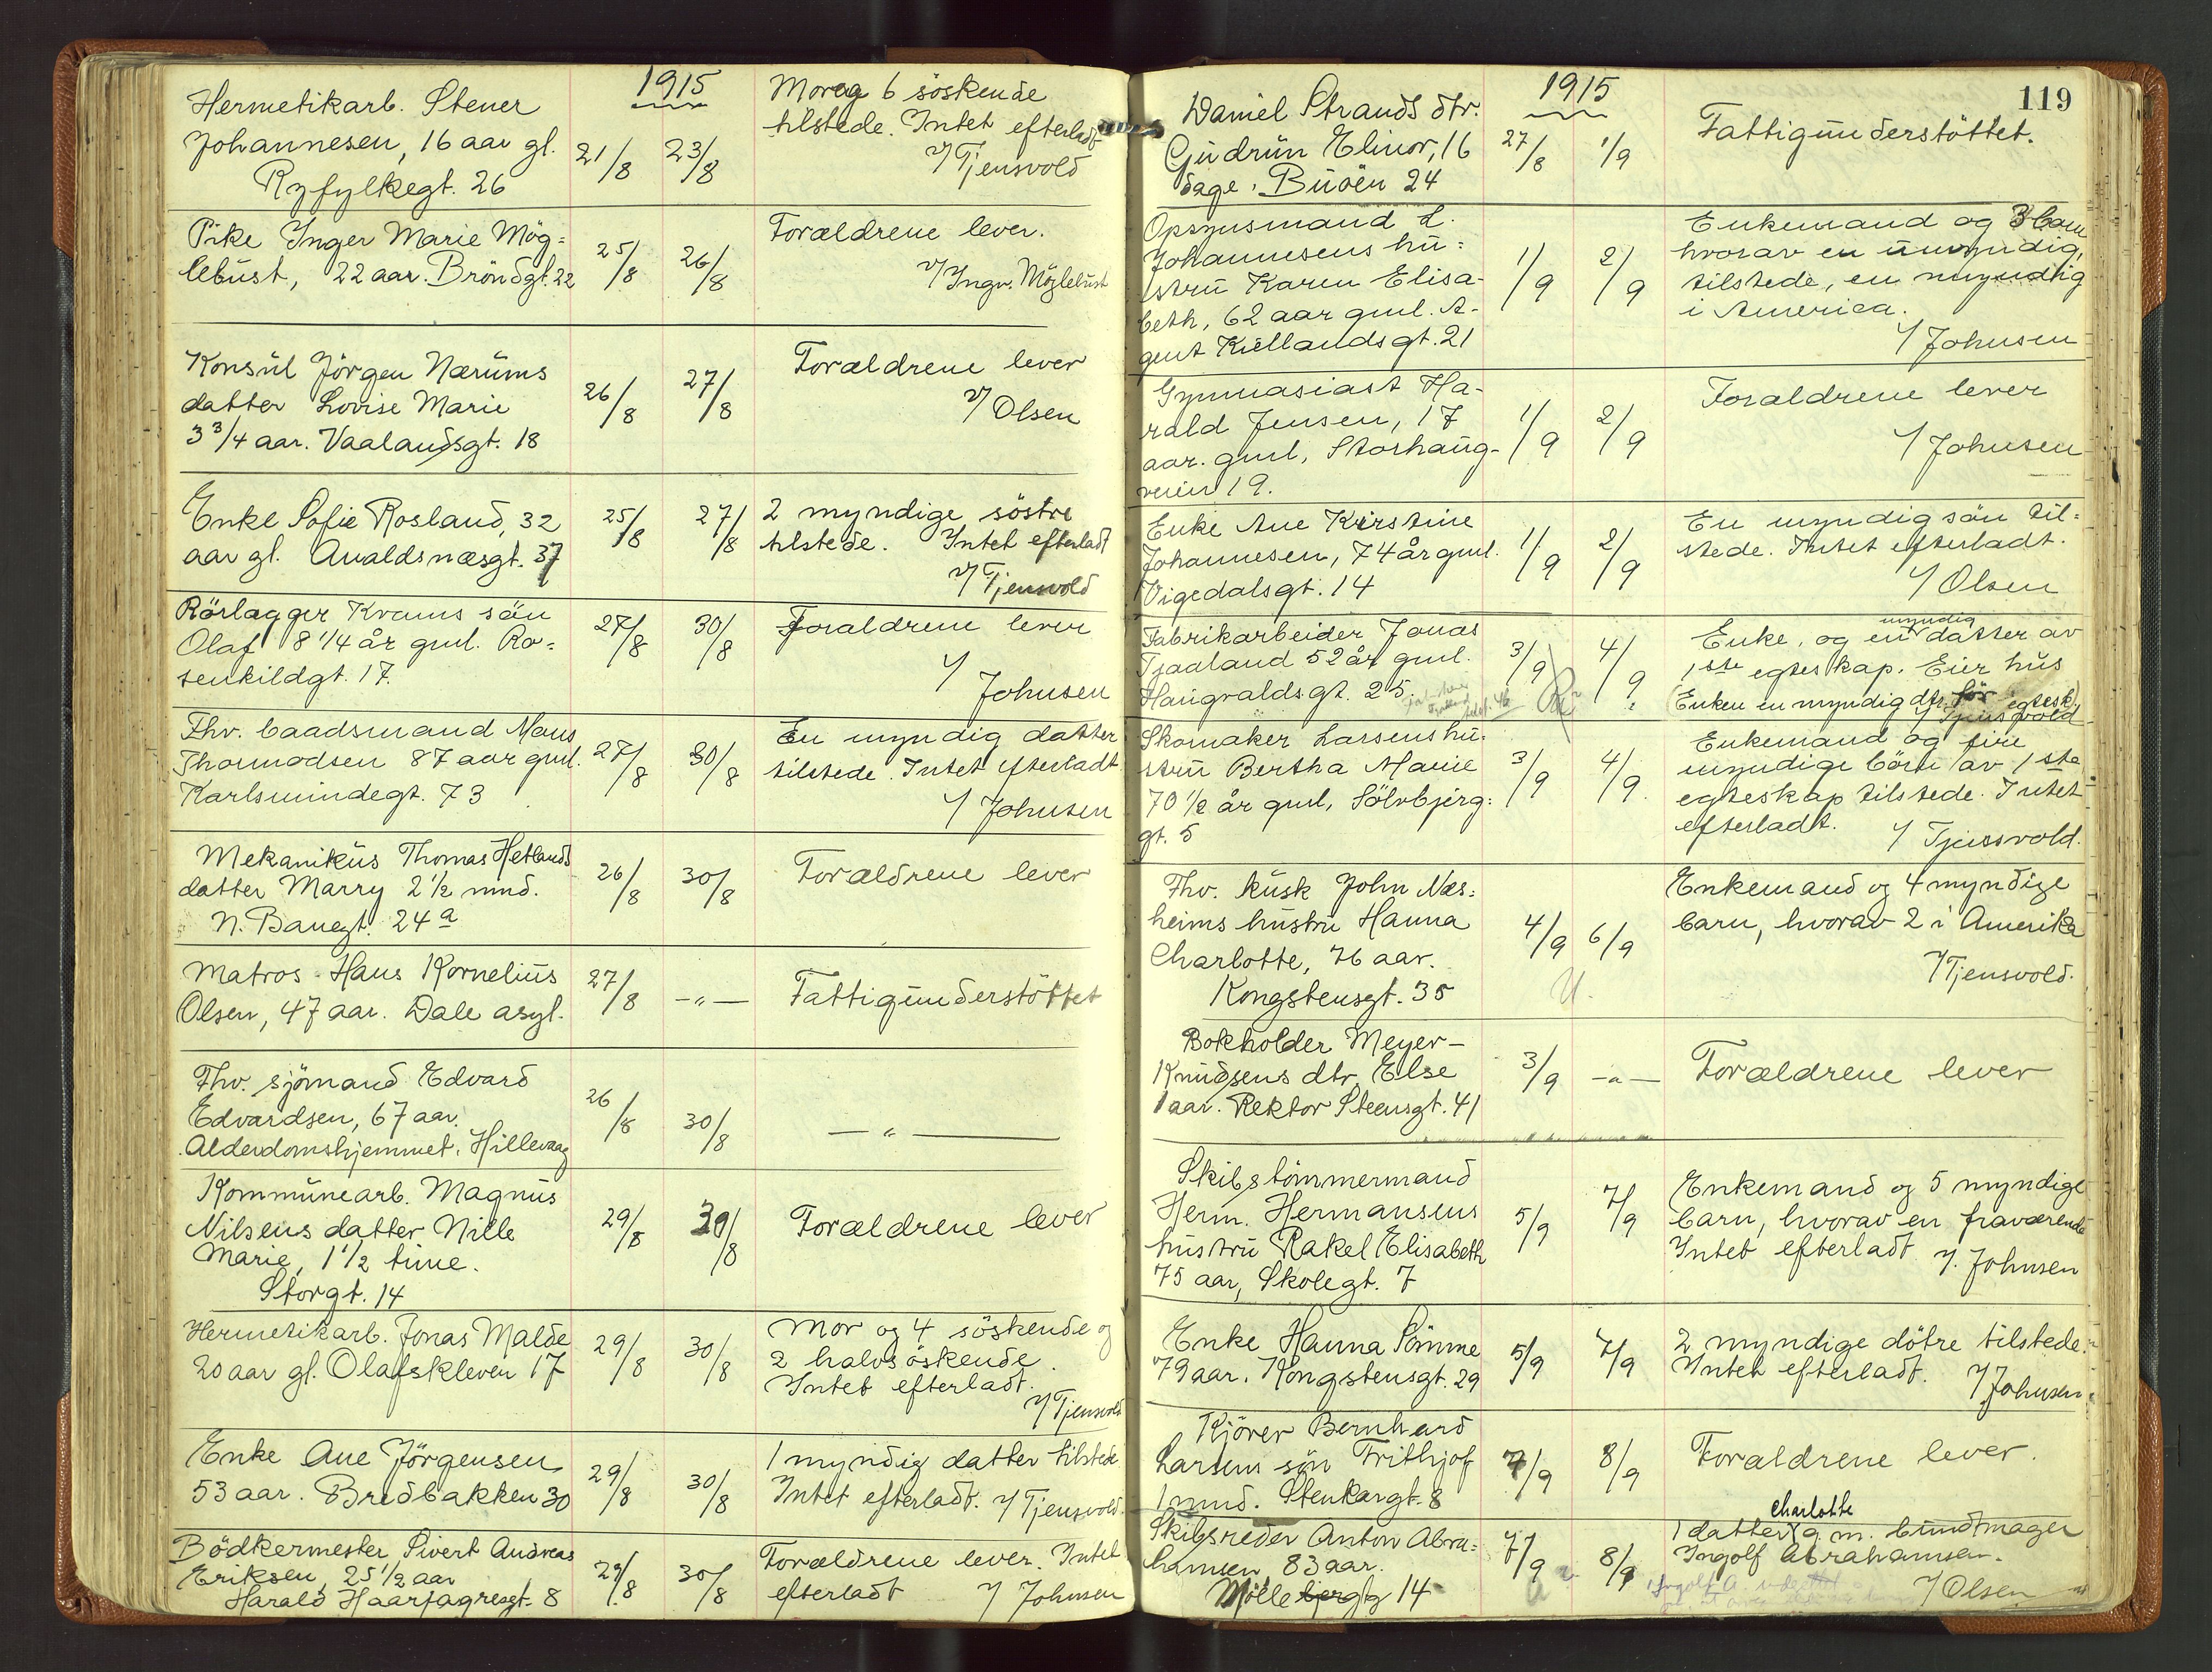 1915
Hermetikarb. Stener
Johannesen, 16 aar gl.
Ryfylkegt. 26
21/8 23/8
Mor og 6 söskende
tilstede. Intet efterladt
v/ Tjensvold
Pike Inger Marie Mög=
lebust, 22 aar. Bröndgt. 22
25/8 26/8
Forældrene lever.
v/ Ingv. Möglebust
Konsul Jörgen Nærums
datter Lovise Marie
3 3/4 aar. Vaalandsgt. 18
26/8 27/8
Forældrene lever
v/ Olsen
Enke Sofie Rosland, 32
aar gl. Avaldsnæsgt. 37
25/8 27/8
2 myndige söstre
tilstede. Intet efterladt
v/ Tjensvold
Rörlægger Kvams sön
Olaf 8 1/4 år gml. Ro=
senkildgt. 17.
27/8 30/8
Forældrene lever
v/ Johnsen
Fhv. baadsmand Mans
Thormodsen 87 aar gml.
Karlsmindegt. 73
27/8 30/8
En myndig datter
tilstede. Intet efterladt
v/ Johnsen
Mekanikus Thomas Hetlands
datter Marry 2 1/2 mnd.
N. Banegt. 24 a
26/8 30/8
Forældrene lever
Matros Hans Kornelius
Olsen, 47 aar. Dale asyl.
27/8 —„—
Fattigunderstöttet
Fhv. sjömand Edvard
Edvardsen, 67 aar.
Alderdomshjemmet, Hillevaag
26/8 30/8
—„—
Kommunearb. Magnus
Nilsens datter Nille
Marie, 1 1/2 time.
Storgt. 14
29/8 30/8
Forældrene lever
Hermetikarb. Jonas Malde
20 aar gl. Olafskleven 17
29/8 30/8
Mor og 4 söskende og
2 halvsöskende.
Intet efterladt.
v/ Tjensvold
Enke Ane Jörgensen
53 aar. Bredbakken 30
29/8 30/8
1 myndig datter tilstede
Intet efterladt. v/ Tjensvold.
Bödkermester Sivert Andreas
Eriksen, 25 1/2 aar
Harald Haarfagresgt. 8
29/8 30/8
Forældrene lever. Intet
efterladt v/ Johnsen
1915
119
Daniel Strands dtr.
Gudrun Elinor, 16
dage. Buöen 24
27/8 1/9
Fattigunderstöttet.
Opsynsmand L.
Johannesens hu=
stru Karen Elisa-
beth, 62 aar gml. A-
gent Kiellandsgt. 21
1/9 2/9
Enkemand og 3 barn
hvorav en umyndig,
tilstede, en myndig
i America.
v/ Johnsen
Gymnasiast Ha-
rald Jensen, 17
aar. gml, Storhaug-
veien 19.
1/9 2/9
Forældrene lever
v/ Johnsen
Enke Ane Kirstine
Johannesen, 74 år gml.
Vigedalsgt. 14
1/9 2/9
En myndig sön til=
stede. Intet efterladt.
v/ Olsen
Fabrikarbeider Jonas
Tjaaland 52 år gml.
Haugvaldsgt. 25.
3/9 4/9
myndig
Enke, og en datter av
1ste egteskap. Eier hus
(Enken en myndig dtr. för egtesk)
v/ Tjensvold
Skomaker Larsens hu=
stru Bertha Marie
70 1/2 år gml, Sölvbjerg=
gt. 5
3/9 4/9.
Enkemand og fire
myndige börn av 1ste
egteskap tilstede. Intet
efterladt. v/ Tjensvold.
Fhv. kusk John Næs=
heims hustru Hanna
Charlotte, 76 aar.
Kongstensgt. 35
4/9 6/9
U.
Enkemand og 4 myndige
barn, hvorav 2 i Amerika
v/ Tjensvold.
Bokholder Meyer-
Knudsens dtr. Else
1 aar. Rektor Steensgt. 41
3/9 —„—
Forældrene lever
Skibstömmermand
Herm. Hermansens
hustru Rakel Elisabeth
75 aar, Skolegt. 7
5/9 7/9
Enkemand og 5 myndige
barn, hvorav en fraværende
Intet efterladt v/ Johnsen
Enke Hanna Sömme
79 aar. Kongstensgt. 29
5/9 7/9
2 myndige dötre tilstede.
Intet efterladt. v/ Johnsen.
Kjörer Bernhard
Larsens sön Frithjof
1 mnd. Stenkargt. 8
7/9 8/9
Forældrene lever.
Skibsreder Anton Abra=
hamsen 83 aar.
Möllebjerggt 14
7/9 8/9
Charlotte
1 datter g. m. bundtmager
Ingolf Abrahamsen.
v/ Olsen